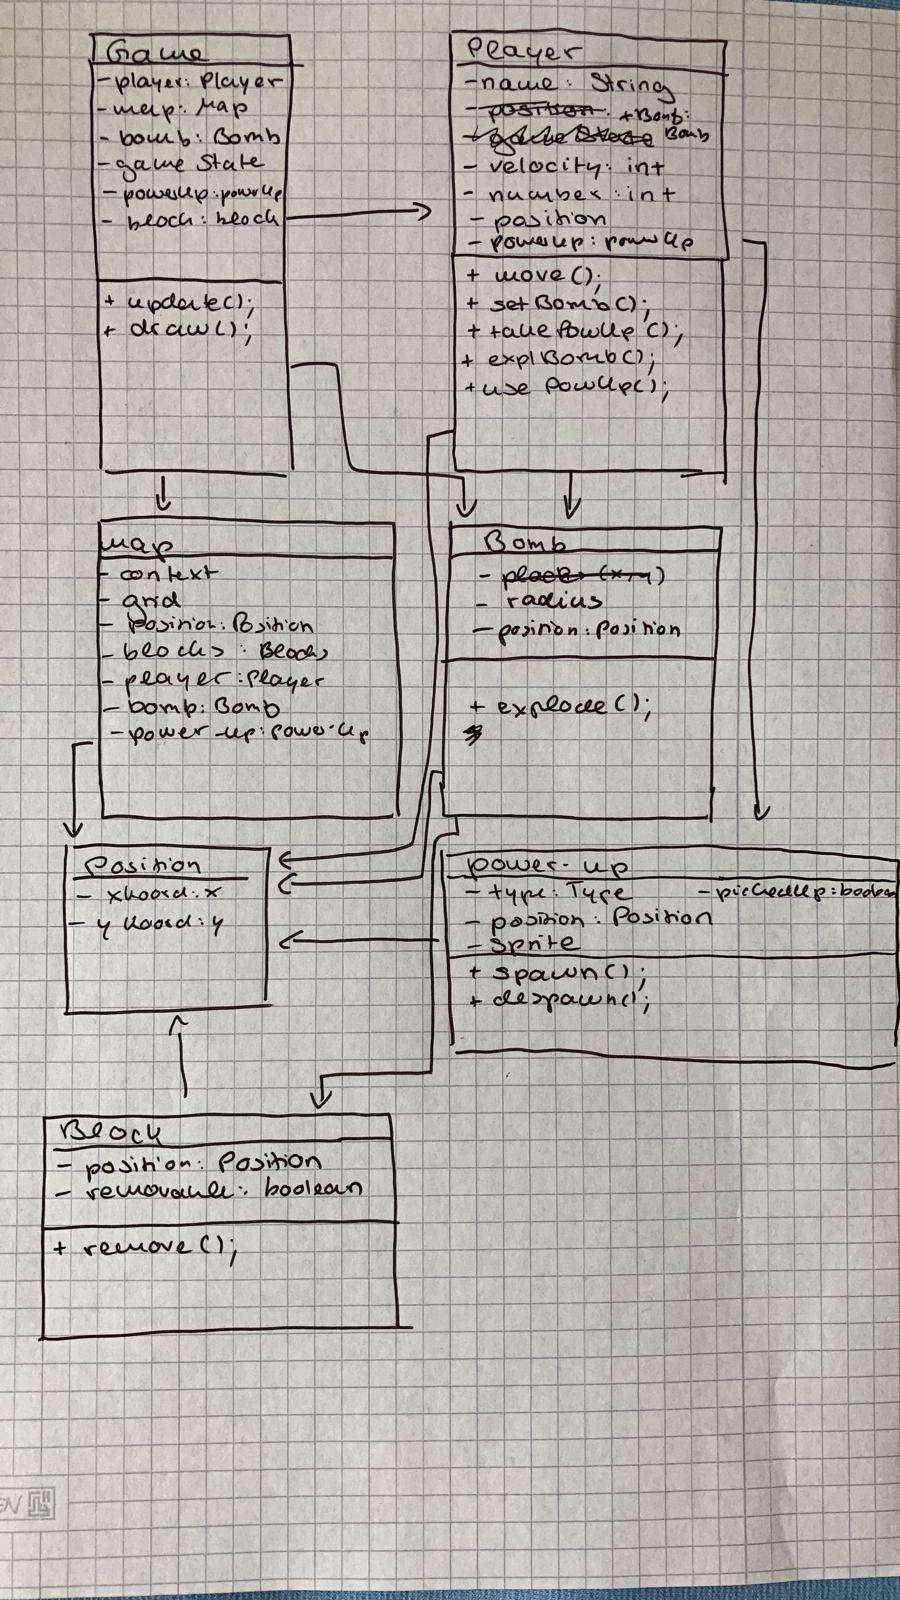 Game
-player: Player
-map: Map
-bomb: Bomb
-game State
-powerUp: powerUp
- block: block
+ update();
+ draw();
Player
-name: String
-position +Bomb:
Bomb
- velocity: int
- number: int
- position
- powerUp: powerUp
+ move();
+ setBomb();
+ takePowUp();
+ explBomb();
+ use PowUp();
map
- context
- grid
- Position: Position
- blocks: Blocks
- player: Player
- bomb: Bomb
- power-up: Power-Up
Bomb
- radius
- position: Position
+ explode();
Position
- xKoord: x
- y Koord: y
power-up
- type: Type - pickedUp: boolean
- position: Position
- sprite
+ spawn();
+ despawn();
Block
- position: Position
- removable: boolean
+ remove();